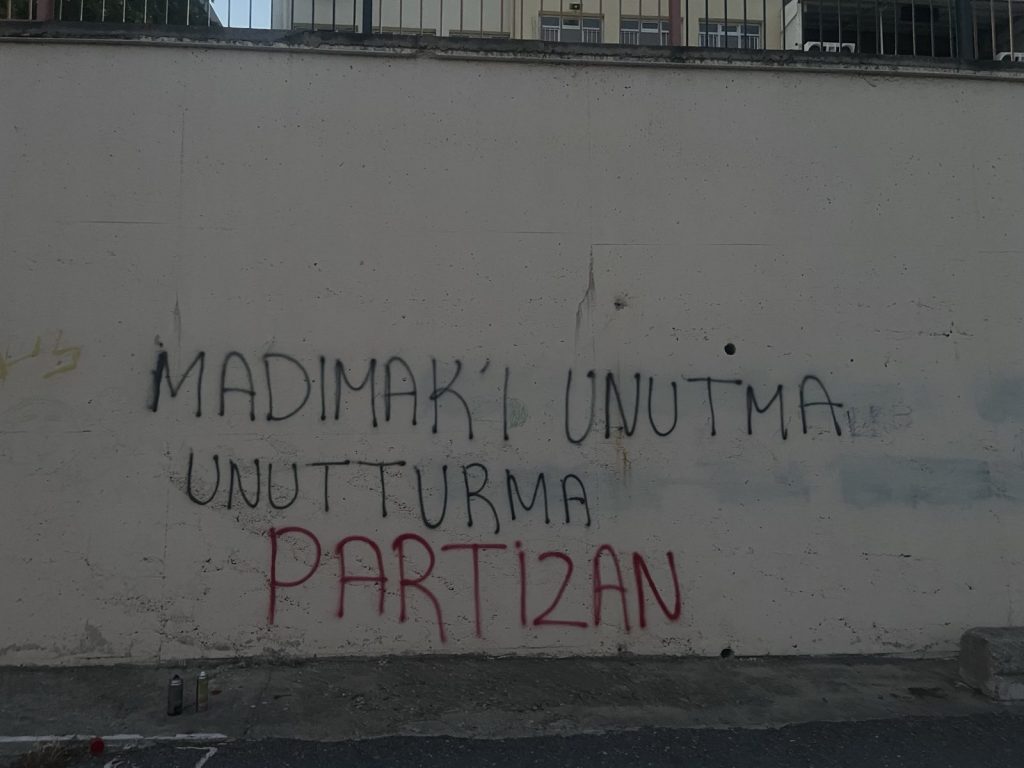 MADIMAK'I UNUTMA
UNUTTURMA
PARTİZAN